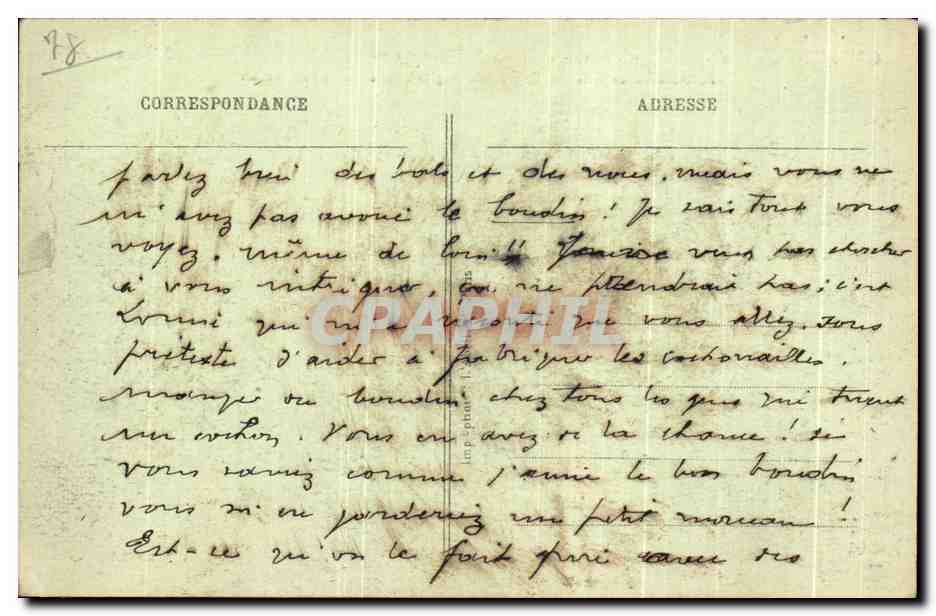 78
CORRESPONDANCE
ADRESSE
parlez bien des bals et des noces, mais vous ne
m'avez pas avoué le boudin! Je sais tout vous
voyez, même de loin!! vous pas chercher
à vous intriguer, ça ne prendrait pas; c'est
qui m'a raconté que vous allez, sous
prétexte d'aider à fabriquer les cochonailles,
manger du boudin chez tous les gens qui tuent
un cochon. Vous en avez de la chance! si
vous saviez comme j'aime le bon boudin
vous m'en garderiez un petit morceau!!
Est-ce qu'on le fait avec des
CPARAPHIL